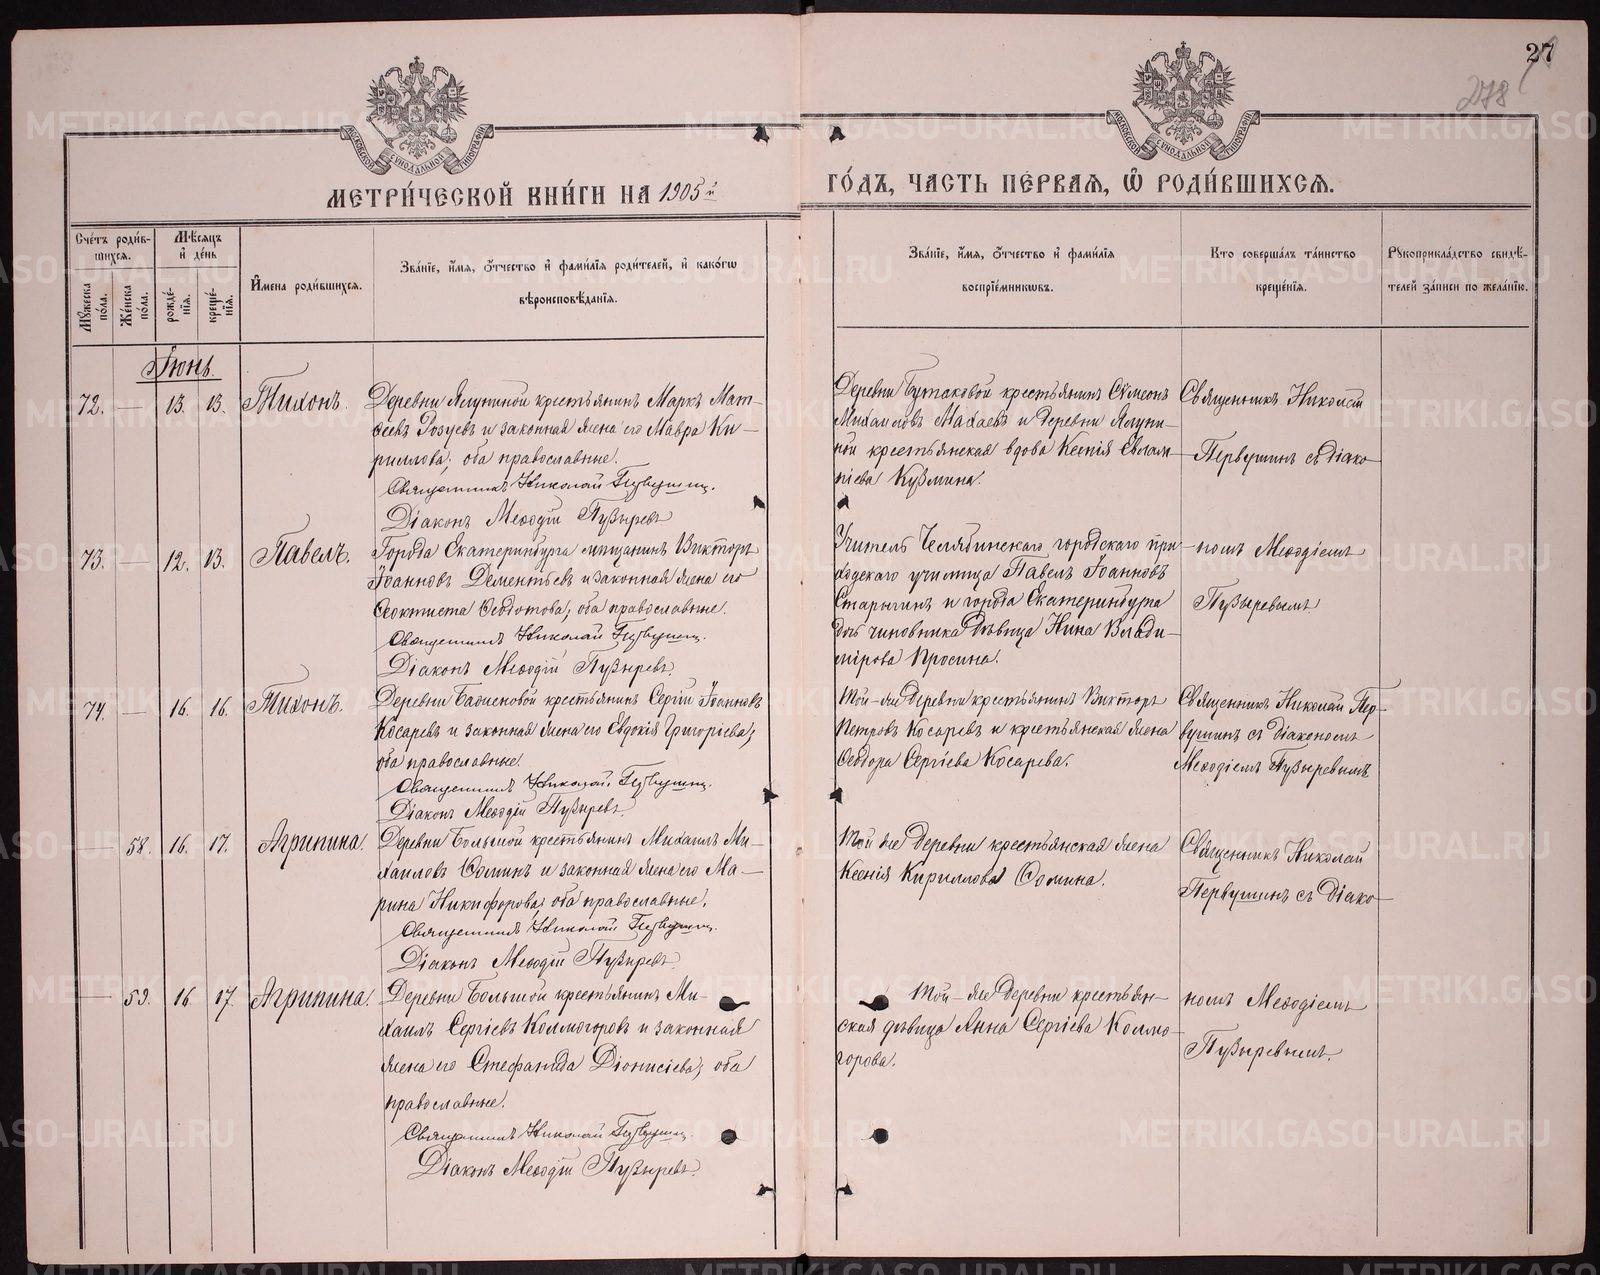 27
278
МОСКОВСКОЙ СѴНОДАЛЬНОЙ ТИПОГРАФІИ
МОСКОВСКОЙ СѴНОДАЛЬНОЙ ТИПОГРАФІИ
МЕТРИ́ЧЕСКОЙ КНИ́ГИ НА 1905й ГО́ДЪ, ЧАСТЬ ПЕ́РВАЯ, Ѿ РОДИ́ВШИХСЯ.
Сче́тъ роди́в-
шихся.
Мꙋ́жеска по́ла.
Же́нска по́ла.
Мѣ́сяцъ и де́нь
рожде́-
нія.
креще́-
нія.
И́мена роди́вшихся.
Зва́ніе, и́мя, ѻ́тчество и фами́лія роди́телей, и како́гѡ
вѣроисповѣ́данія.
Зва́ніе, и́мя, ѻ́тчество и фами́лія
воспріе́мниковъ.
Кто соверша́лъ та́инство
креще́нія.
Рꙋкоприкла́дство свидѣ́-
телей за́писи по жела́нію.
Іюнь.
72. — 13. 13. Тихонъ.
Деревни Ялуниной крестьянинъ Маркъ Мат-
ѳеевъ и законная жена его Мавра Ки-
риллова; оба православные.
Священникъ Николай Первушин.
Діаконъ Меѳодій Пузыревъ
Деревни Бутаковой крестьянинъ Сѵмеонъ
Михаиловъ Махаевъ и деревни Ялуни-
ной крестьянская вдова Ксенія Евлам-
піева Кузмина.
Священникъ Николай
Первушинъ съ діако-
73. — 12. 13. Павелъ.
Города Екатеринбурга мѣщанинъ Викторъ
Іоанновъ Дементьевъ и законная жена его
Ѳеоктиста Ѳеодотова; оба православные.
Священникъ Николай Первушин.
Діаконъ Меѳодій Пузыревъ.
Учитель Челябинскаго городскаго при-
ходскаго училища Павелъ Іоанновъ
Старыгинъ и города Екатеринбурга
дочь чиновника дѣвица Нина Влади-
мірова Просина.
номъ Меѳодіемъ
Пузыревымъ
74. — 16. 16. Тихонъ.
Деревни крестьянинъ Сергій Іоанновъ
Косаревъ и законная жена его Евдокія Григоріева;
оба православные.
Священникъ Николай Первушин.
Діаконъ Меѳодій Пузыревъ.
Той-же деревни крестьянинъ Викторъ
Петровъ Косаревъ и крестьянская жена
Ѳеодора Сергіева Косарева.
Священникъ Николай Пер-
вушинъ съ діакономъ
Меѳодіемъ Пузыревымъ
— 58. 16. 17. Агрипина.
Деревни Большой крестьянинъ Михаилъ Ми-
хаиловъ Ѳоминъ и законная жена его Ма-
рина Никифорова; оба православные.
Священникъ Николай Первушин.
Діаконъ Меѳодій Пузыревъ.
Той же деревни крестьянская жена
Ксенія Кириллова Ѳомина.
Священникъ Николай
Первушинъ съ діако-
— 59. 16. 17. Агрипина.
Деревни Большой крестьянинъ Ми-
хаилъ Сергіевъ Колмогоровъ и законная
жена его Стефанида Діонисіева; оба
православные.
Священникъ Николай Первушин.
Діаконъ Меѳодій Пузыревъ.
Той-же деревни крестьян-
ская дѣвица Анна Сергіева Колмо-
горова.
номъ Меѳодіемъ
Пузыревымъ.
METRIKI.GASO-URAL.RU